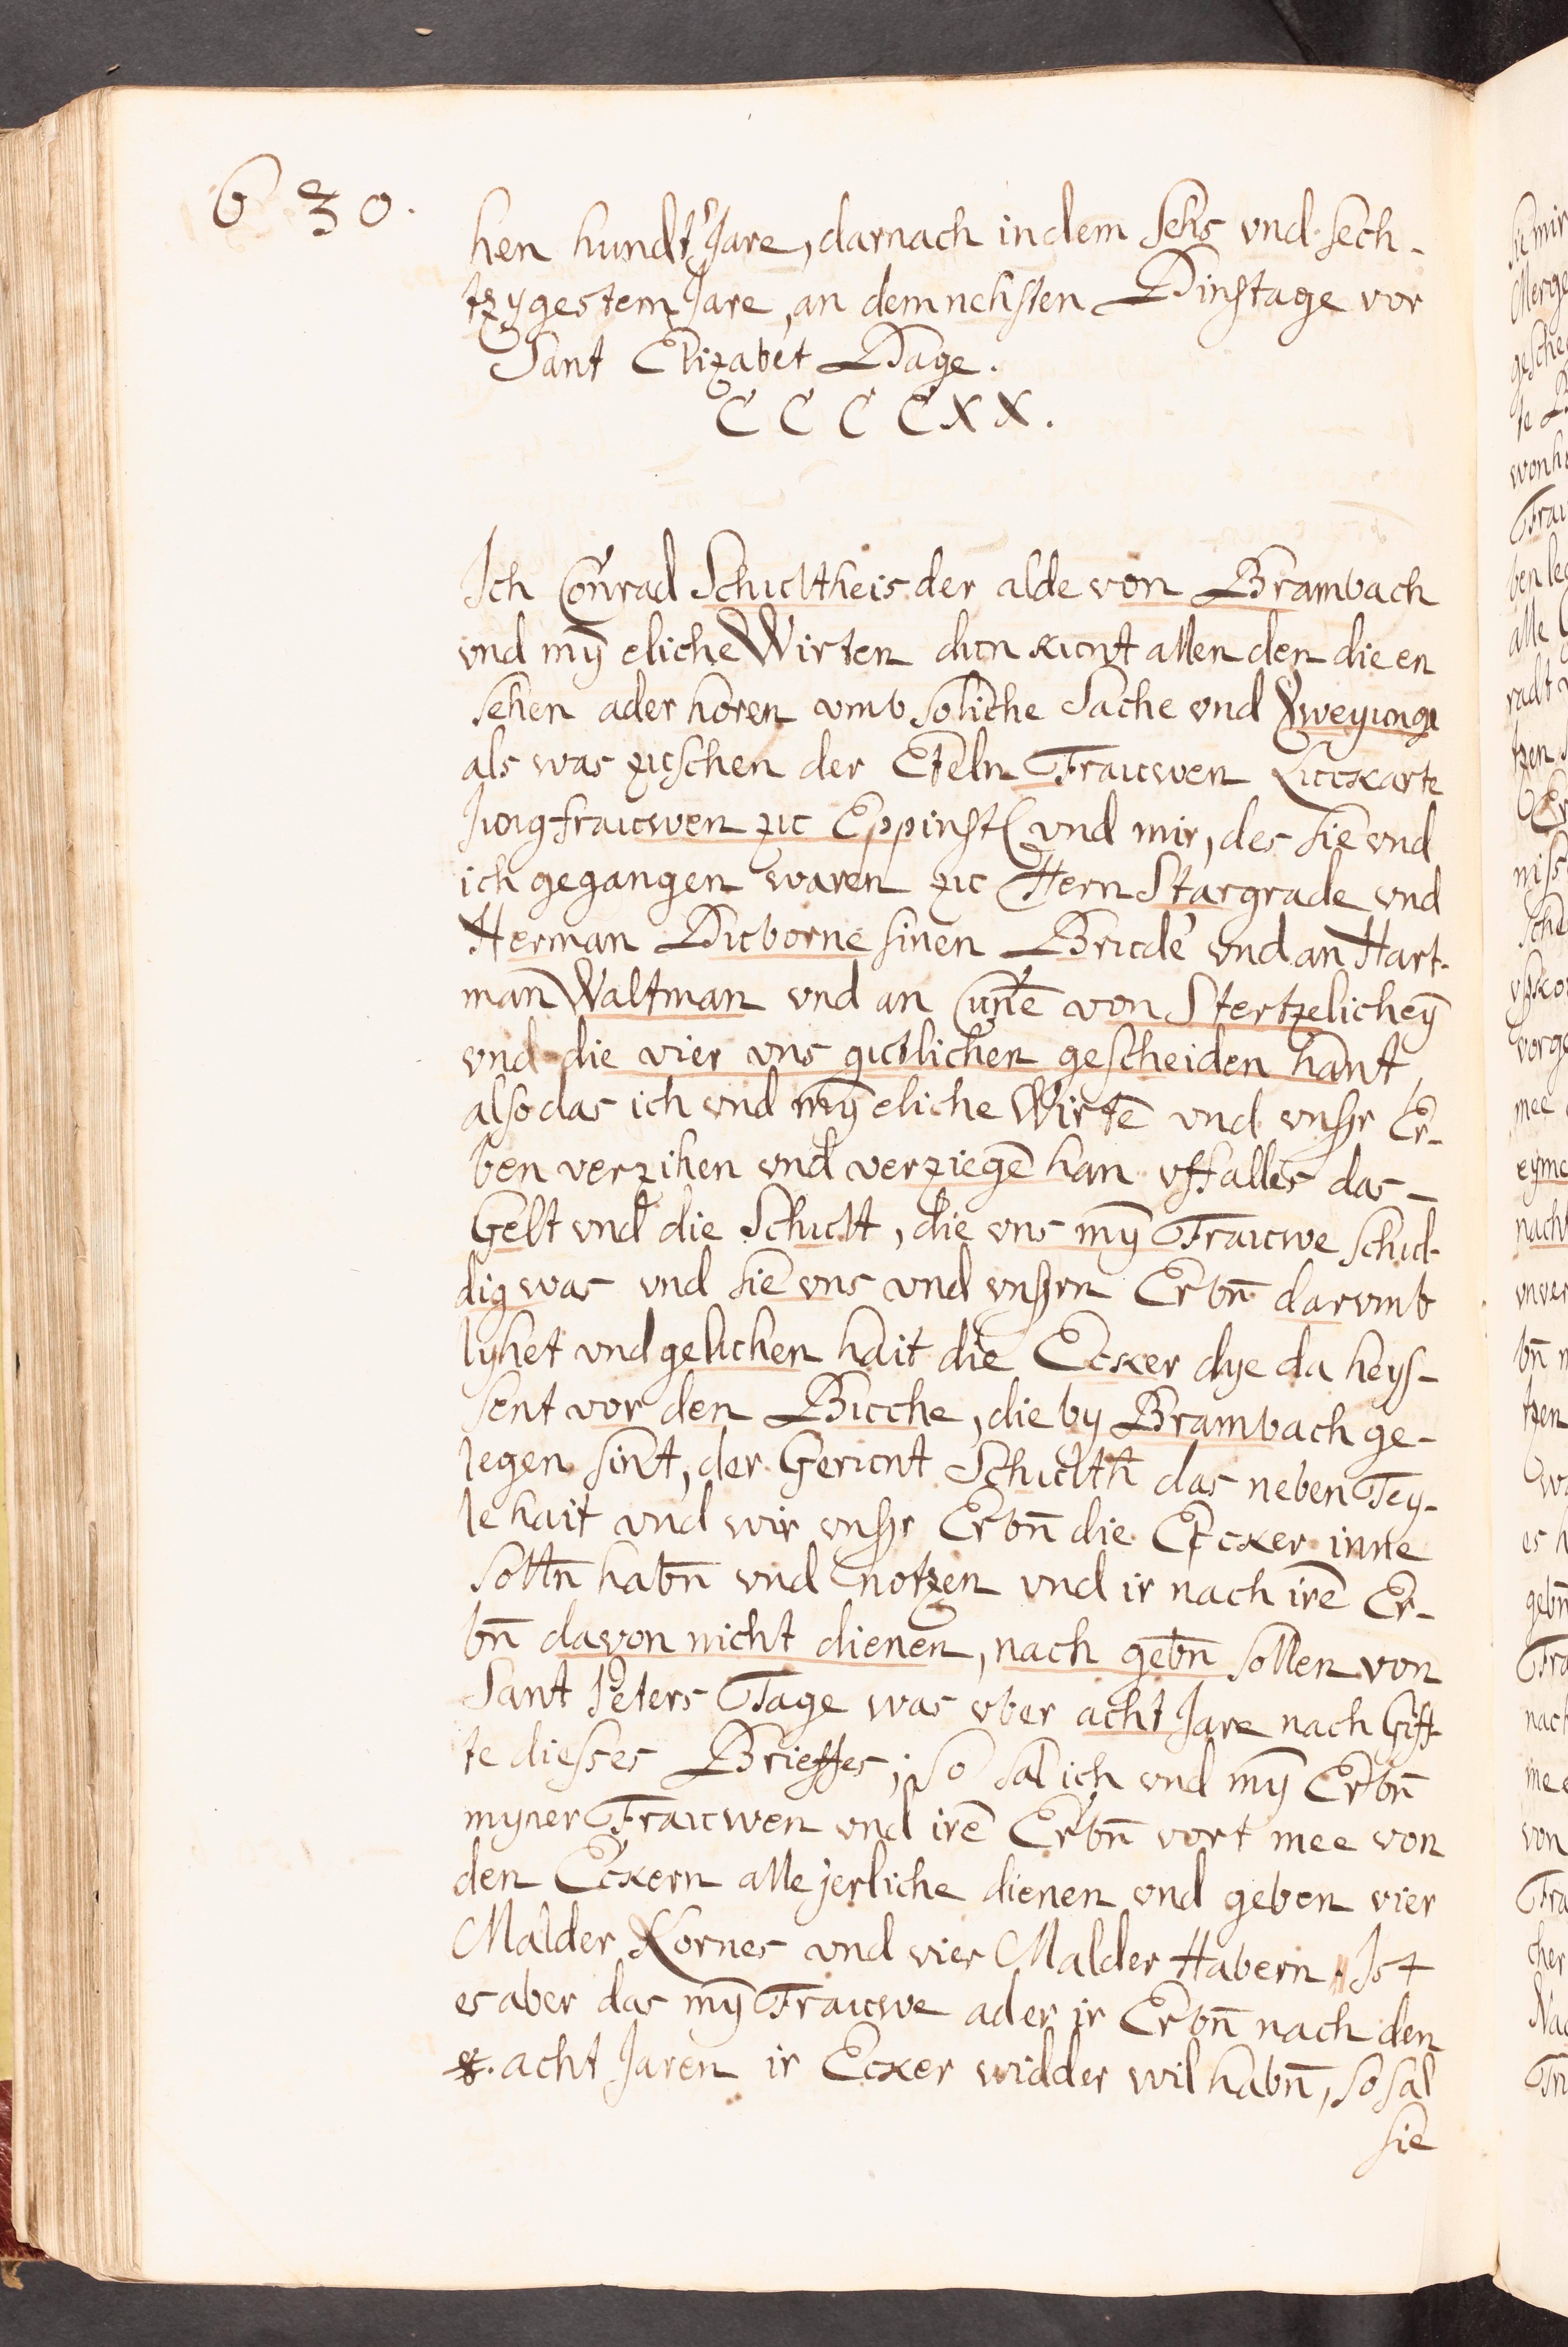 630.
hen hundt' Jare, darnach in dem Sehs vnd sech-
tzygestem Jare, an dem nehsten Dinstage vor
Sant Elizabet Dage.
CCCCXX.
Ich Conrad Schultheis der alde von Brambach
vnd mȳ eliche Wirten dun kunt allen den die en
sehen ader horen vmb soliche Sache vnd Zweyunge
als was zuschen der Eteln Frauwen Luckarte
Jungfrauwen zu Eppinst vnd mir, des sie vnd
ich gegangen waren zu Hern Stargrade vnd
Herman Duborne sinen Brude' vnd an Hart-
man Waltman vnd an Cune von Stertzelicheȳ
vnd die vier vns gutlichen gescheiden hant,
also das ich vnd mȳ eliche Wirtē vnd vnsir Er-
ben verzihen vnd verziegē han vff alles das
Gelt vnd die Schult, die vns mȳ Frauwe schul-
dig was vnd sie vns vnd vnsirn Erbn̄ darvmb
lyhet vnd geluhen hait die Ecker dye da heys-
sent vor den Buche, die by Brambach ge-
legen sint, der Gerunt Schulth das neben Tey-
le hait vnd wir vnsir Erbn̄ die Ecker inne
solln̄ habn̄ vnd notzen vnd ir nach irē Er-
bn̄ davon nicht dienen, nach gebn̄ sollen von
Sant Peters Tage was vber acht Jare nach Giff-
te diesses Brieffes; so sal ich vnd mȳ Erbn̄
myner Frauwen vnd irē Erbn̄ vort mee von
den Eckern alle jerliche dienen vnd geben vier
Malder Kornes vnd vier Malder Habern. Ist
es aber das mȳ Frauwe ader ir Erbn̄ nach den
acht Jaren ir Ecker widder wil habn̄, so sal
sie